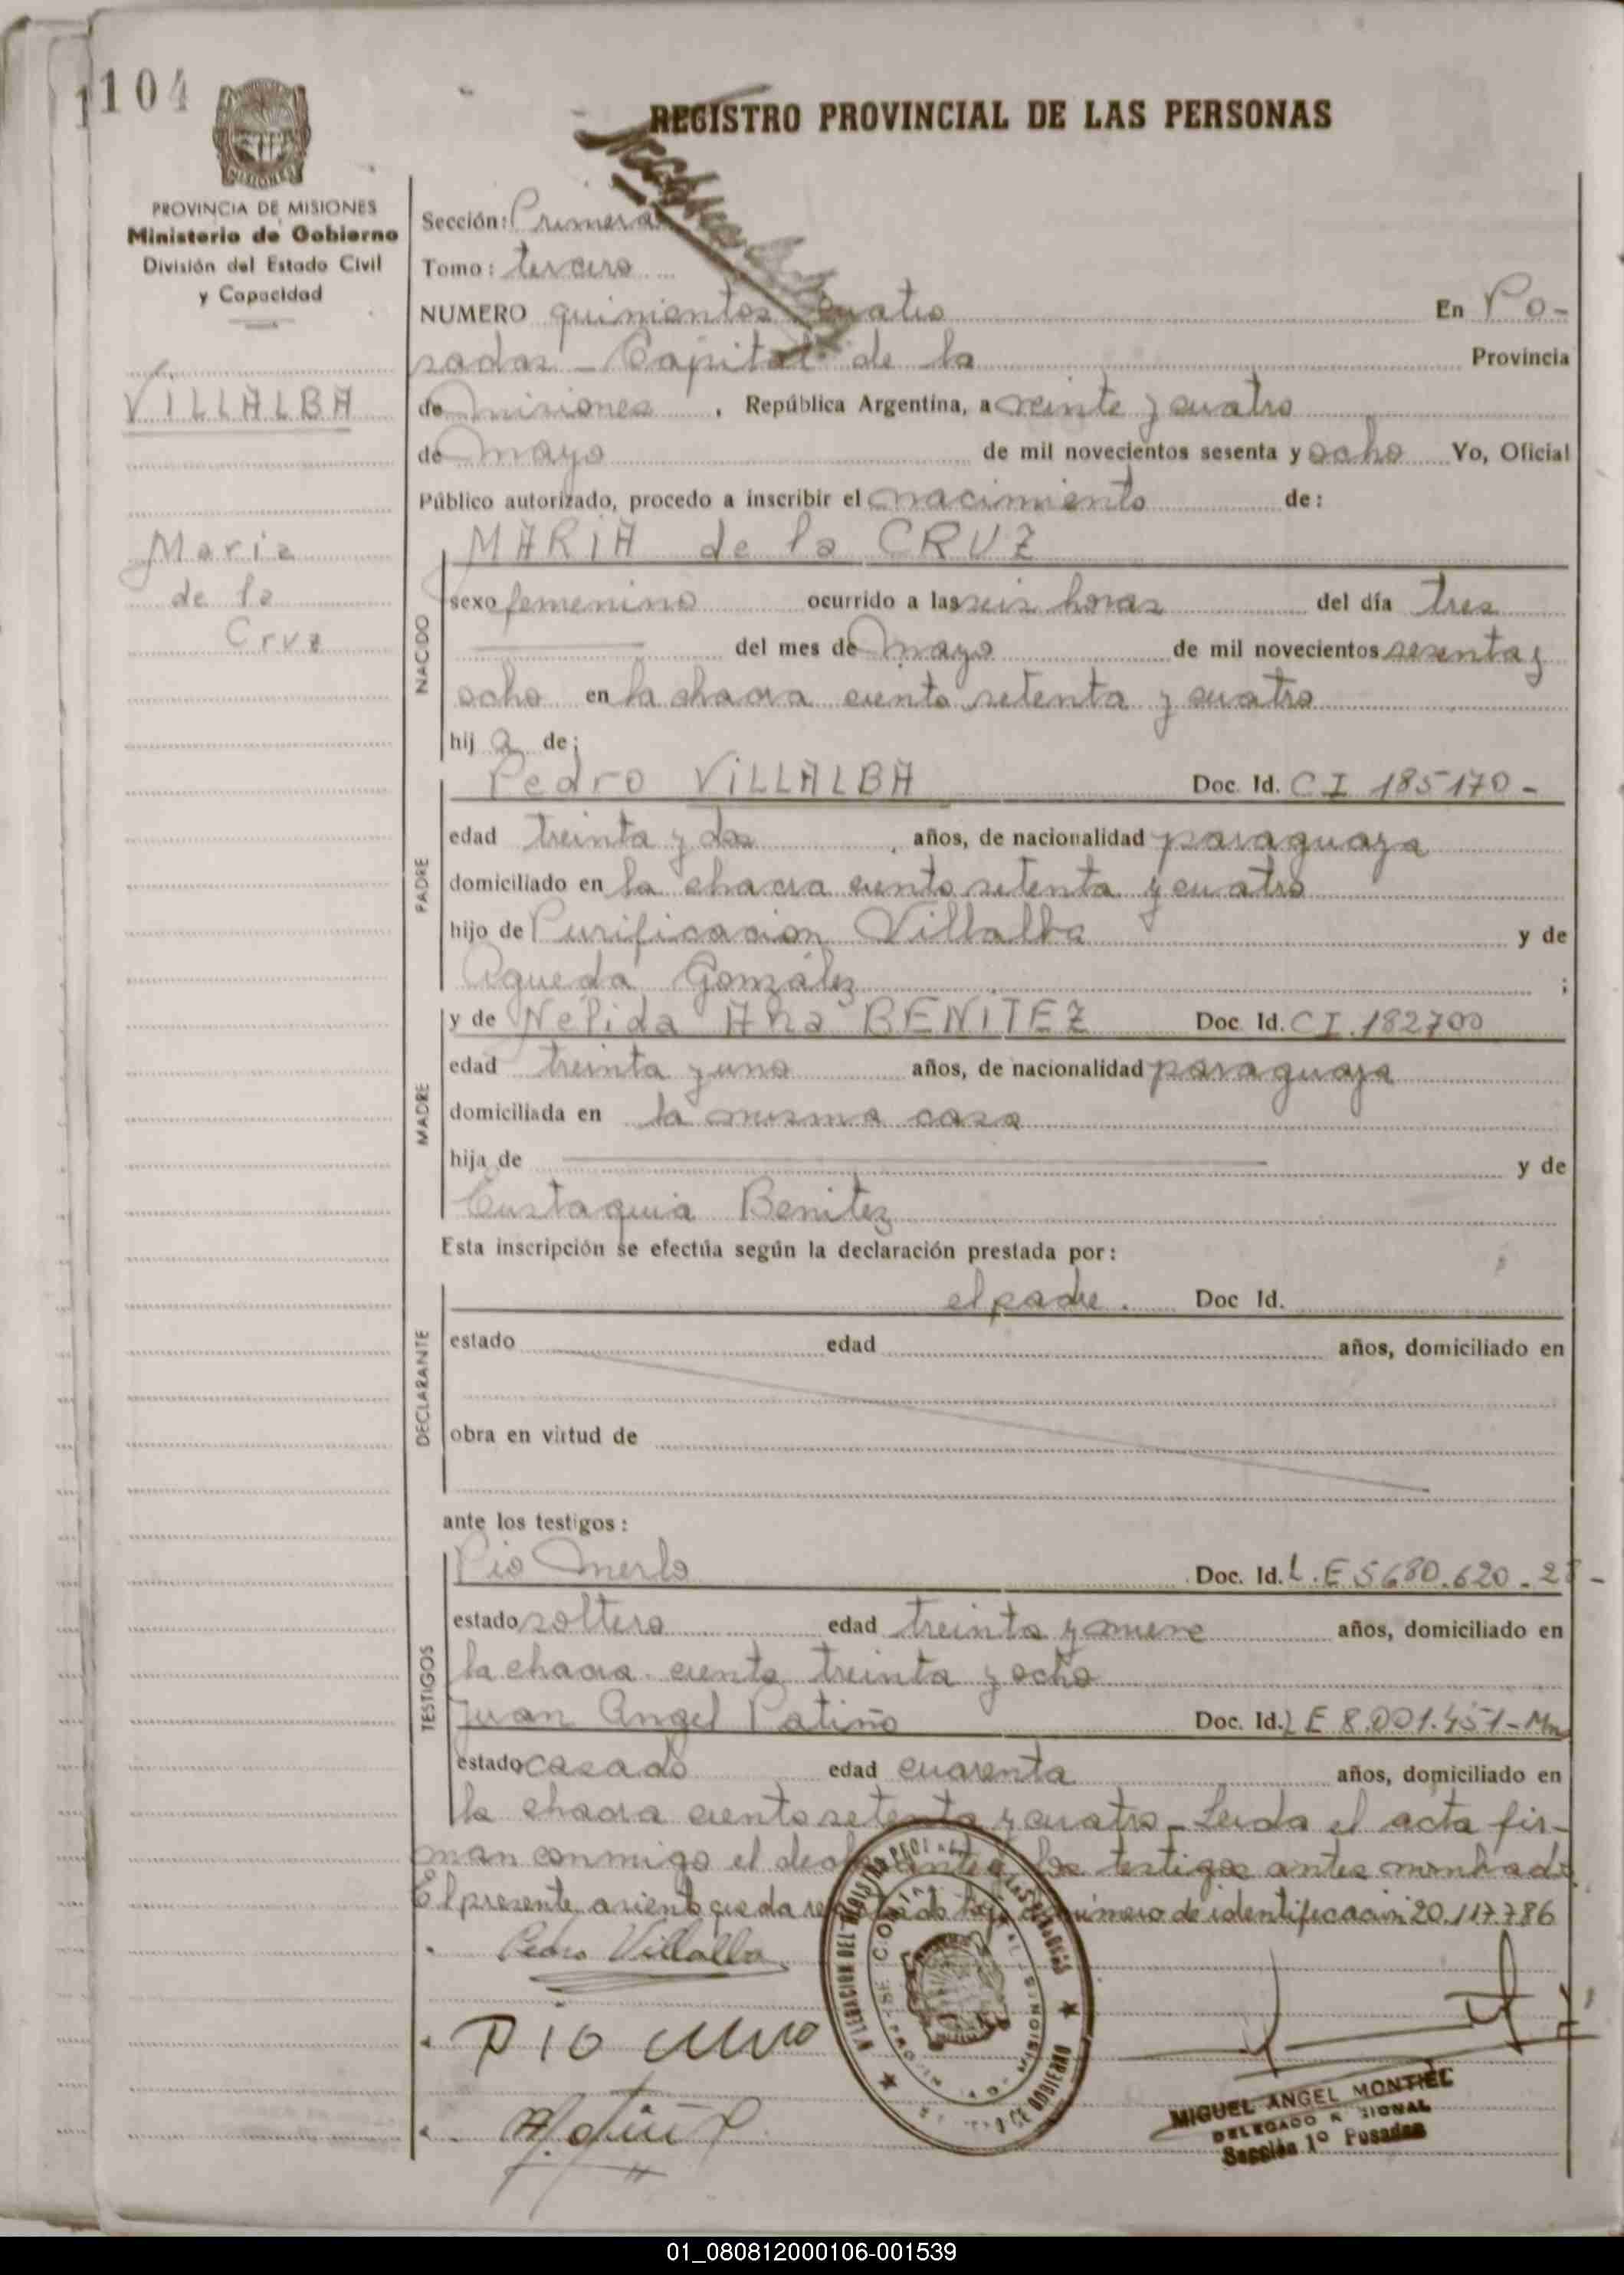 104
REGISTRO PROVINCIAL DE LAS PERSONAS
MISIONES
PROVINCIA DE MISIONES
Ministerio de Gobierno
División del Estado Civil
y Capacidad
VILLALBA
Maria
de la
Cruz
Sección: Primera
Tomo: tercero
NUMERO quinientos cuatro En Po-
sadas - Capital de la Provincia
de misiones, República Argentina, a veinte y cuatro
de mayo de mil novecientos sesenta y ocho Yo, Oficial
Público autorizado, procedo a inscribir el nacimiento de:
MARIA de la CRUZ
NACIDO
sexo femenino ocurrido a las seis horas del día tres
del mes de mayo de mil novecientos sesenta y
ocho en la chacra ciento setenta y cuatro
hij a de:
PADRE
Pedro VILLALBA Doc. Id. CI 185170-
edad treinta y dos, años, de nacionalidad paraguaya
domiciliado en la chacra ciento setenta y cuatro
hijo de Purificacion Villalba y de
Agueda González ;
MADRE
y de Nelida Ana BENITEZ Doc. Id. CI.182700
edad treinta y uno años, de nacionalidad paraguaya
domiciliada en la misma casa
hija de y de
Eustaquia Benitez
Esta inscripción se efectúa según la declaración prestada por:
DECLARANTE
el padre. Doc Id.
estado edad años, domiciliado en
obra en virtud de
ante los testigos:
TESTIGOS
Pio Merlo Doc. Id. L.E 5680.620.
estado soltero edad treinta y nueve años, domiciliado en
la chacra ciento treinta y ocho
Juan Angel Patiño Doc. Id. LE 8.001.451-Mn
estado casado edad cuarenta años, domiciliado en
la chacra ciento setenta y cuatro - Leida el acta fir-
man conmigo el declarante y los testigos antes
El presente asiento queda bajo número de identificación 20.117.786
Pedro Villalba
PIO
MIGUEL ANGEL MONTIEL
DELEGADO
Sección 1º Posadas
01_080812000106-001539